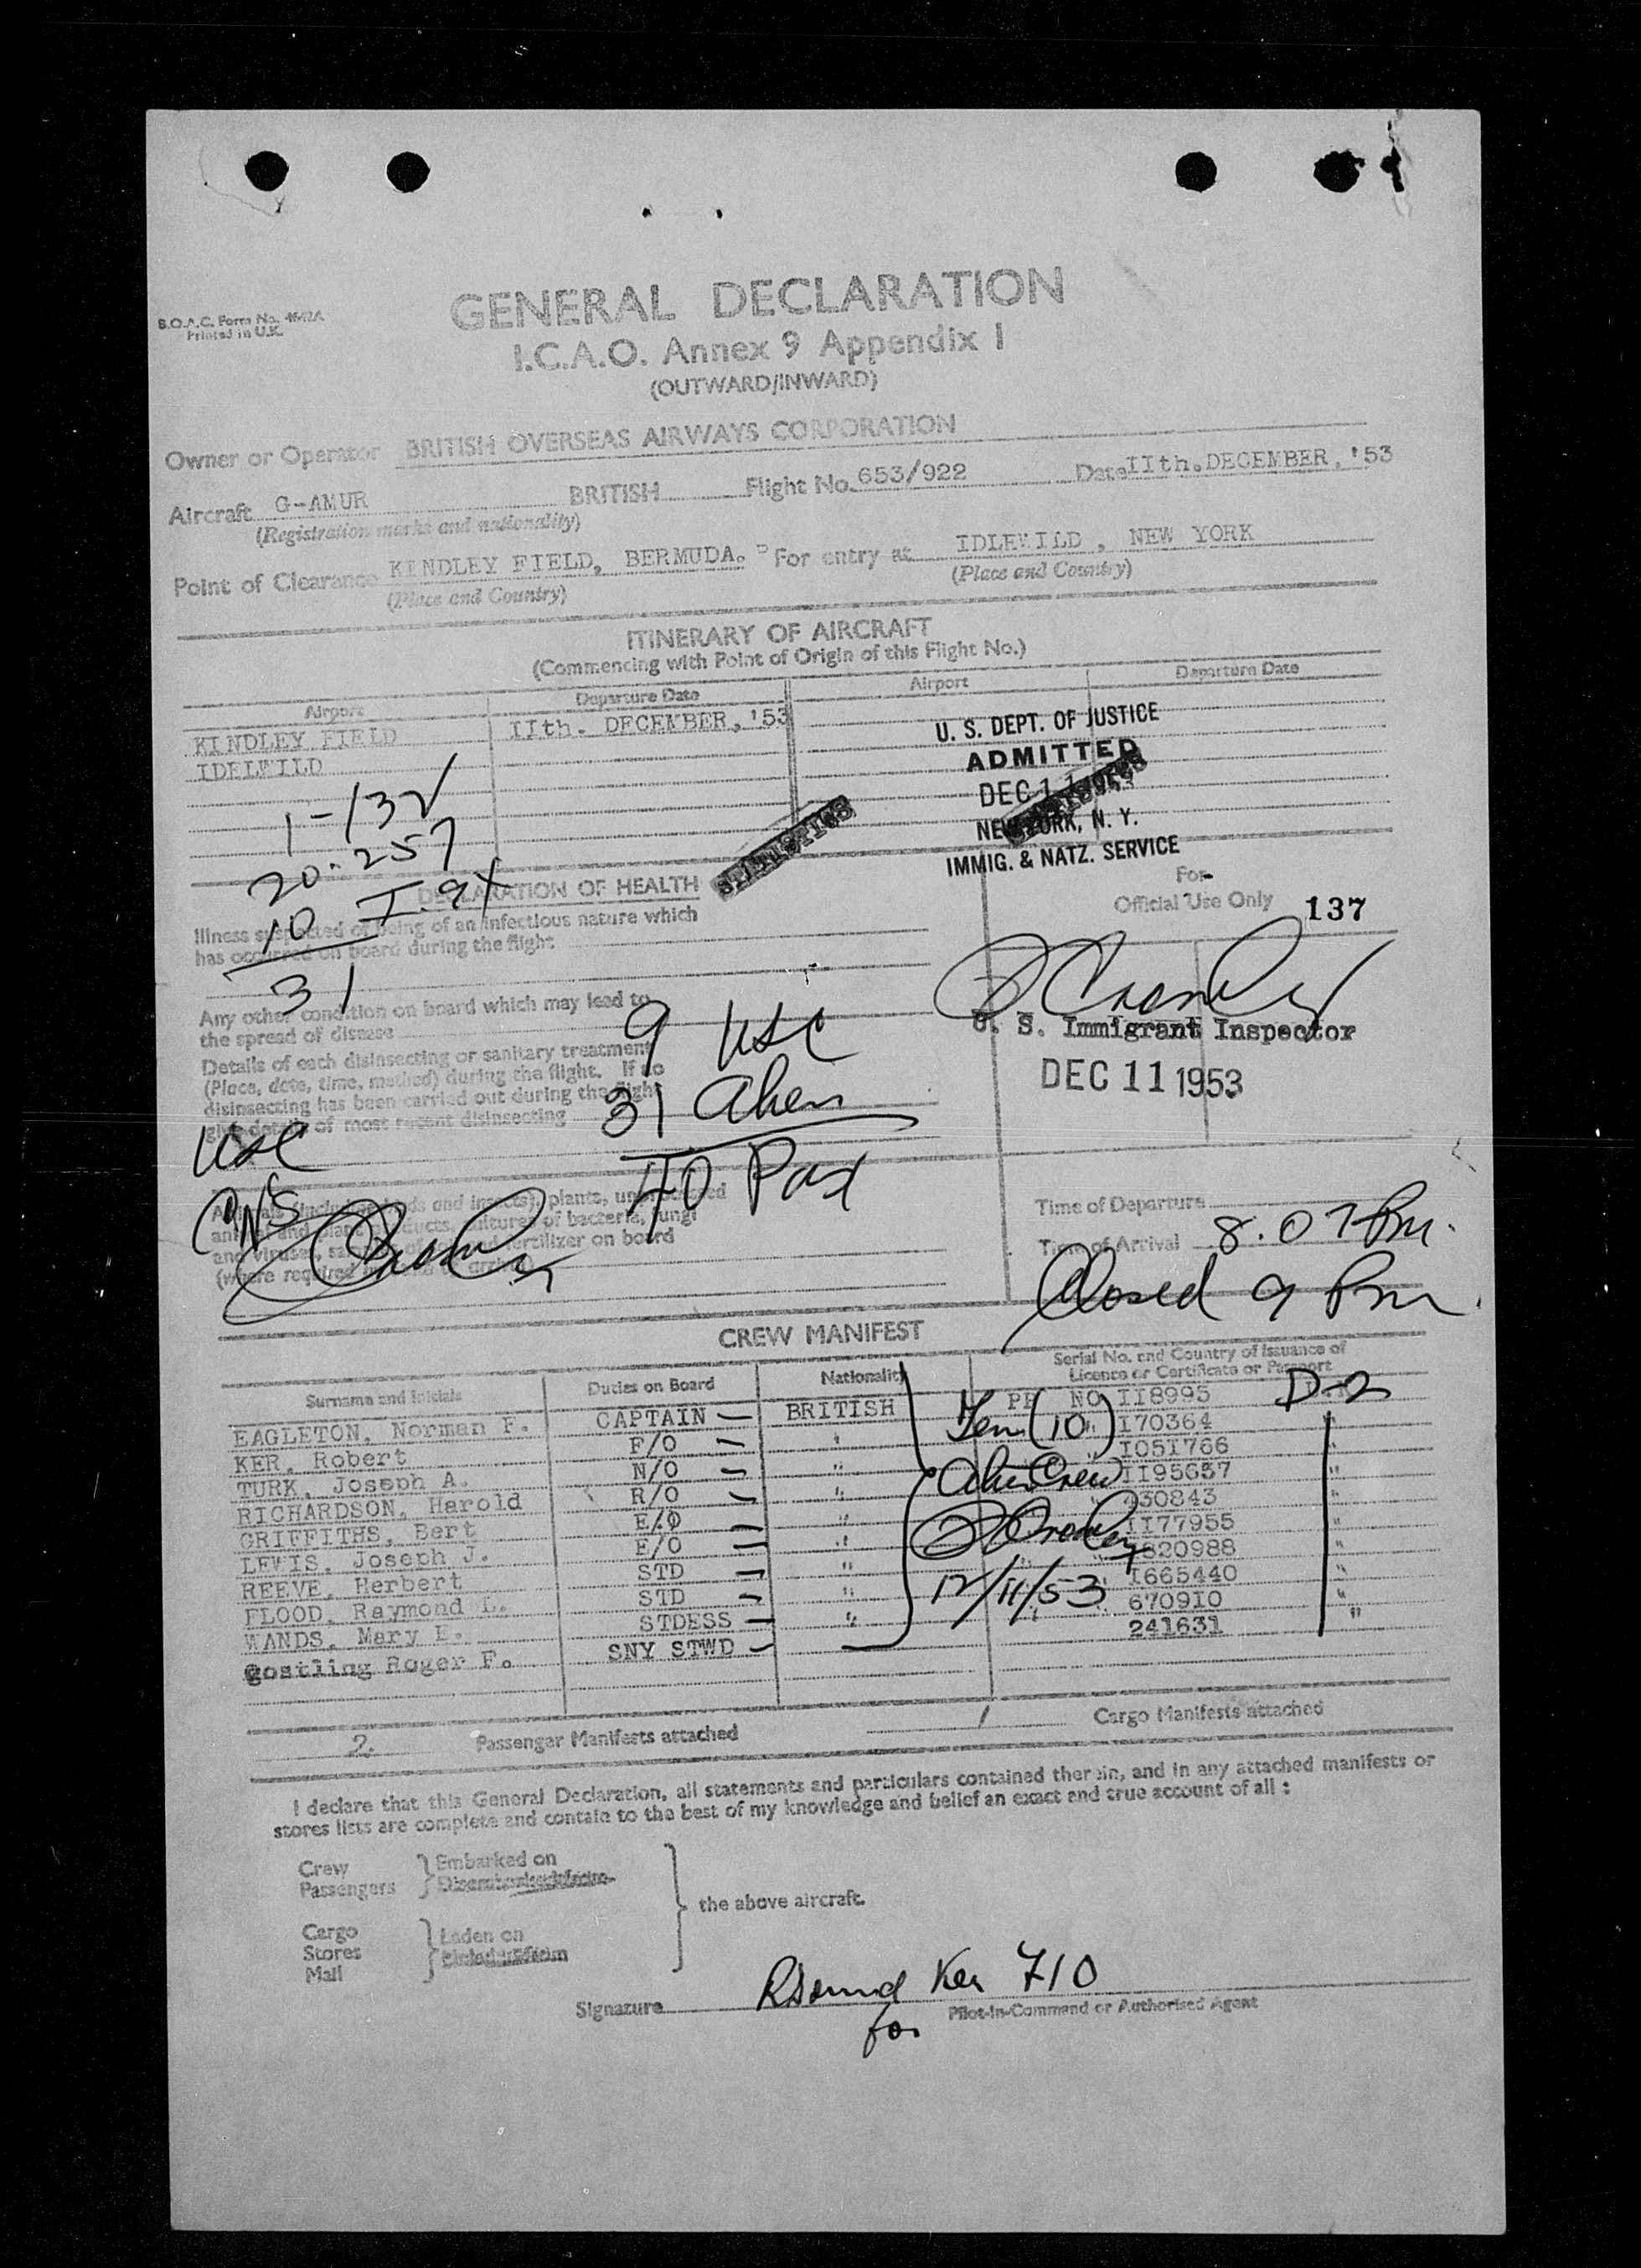 B.O.A.C. Form No.
Printed in U.K.
GENERAL DECLARATION
I.C.A.O. Annex 9 Appendix I
(OUTWARD/INWARD)
Owner or Operator BRITISH OVERSEAS AIRWAYS CORPORATION
Aircraft G-AMUR BRITISH Flight No. 653/922 Date IIth. DECEMBER, '53
(Registration marks and nationality)
Point of Clearance KINDLEY FIELD, BERMUDA. For entry at IDLEWILD, NEW YORK
(Place and Country) (Place and Country)
ITINERARY OF AIRCRAFT
(Commencing with Point of Origin of this Flight No.)
Airport Departure Date Airport Departure Date
KINDLEY FIELD IIth. DECEMBER, '53
IDELWILD
U. S. DEPT. OF JUSTICE
ADMITTED
DEC 11
NEW YORK, N. Y.
IMMIG. & NATZ. SERVICE
STATISTICS
1-132
20-257
10
31
DECLARATION OF HEALTH
For
Official Use Only 137
Illness suspected of being of an infectious nature which
has occurred on board during the flight
Any other condition on board which may lead to
the spread of disease
Details of each disinsecting or sanitary treatment
(Place, date, time, method) during the flight. If no
disinsecting has been carried out during the flight
give details of most recent disinsecting
9 USC
31 Alien
40 Pax
U. S. Immigrant Inspector
DEC 11 1953
USC
Animals (including birds and insects), plants, unprocessed
animal and plant products, cultures of bacteria, fungi
and viruses, fertilizer on board
(where required
Time of Departure
Time of Arrival 8.07 Pm.
Closed 9 Pm.
CREW MANIFEST
Surname and Initials Duties on Board Nationality Serial No. and Country of Issuance of
Licence or Certificate or Passport
EAGLETON, Norman F. CAPTAIN BRITISH PP NO II8995 D-2
KER, Robert F/O " I70364 "
TURK, Joseph A. N/O " I051766 "
RICHARDSON, Harold R/O " II95657 "
GRIFFITHS, Bert E/O " 430843 "
LEWIS, Joseph J. E/O " II77955 "
REEVE, Herbert STD " 820988 "
FLOOD, Raymond L. STD " I665440 "
WANDS, Mary E. STDESS " 670910 "
Gostling Roger F. SNY STWD 241631 "
Ten (10)
Alien Crew
12/11/53
2. Passenger Manifests attached 1 Cargo Manifests attached
I declare that this General Declaration, all statements and particulars contained therein, and in any attached manifests or
stores lists are complete and contain to the best of my knowledge and belief an exact and true account of all :
Crew Embarked on
Passengers
the above aircraft.
Cargo Laden on
Stores
Mail
Signature Ker 710
for Pilot-in-Command or Authorised Agent